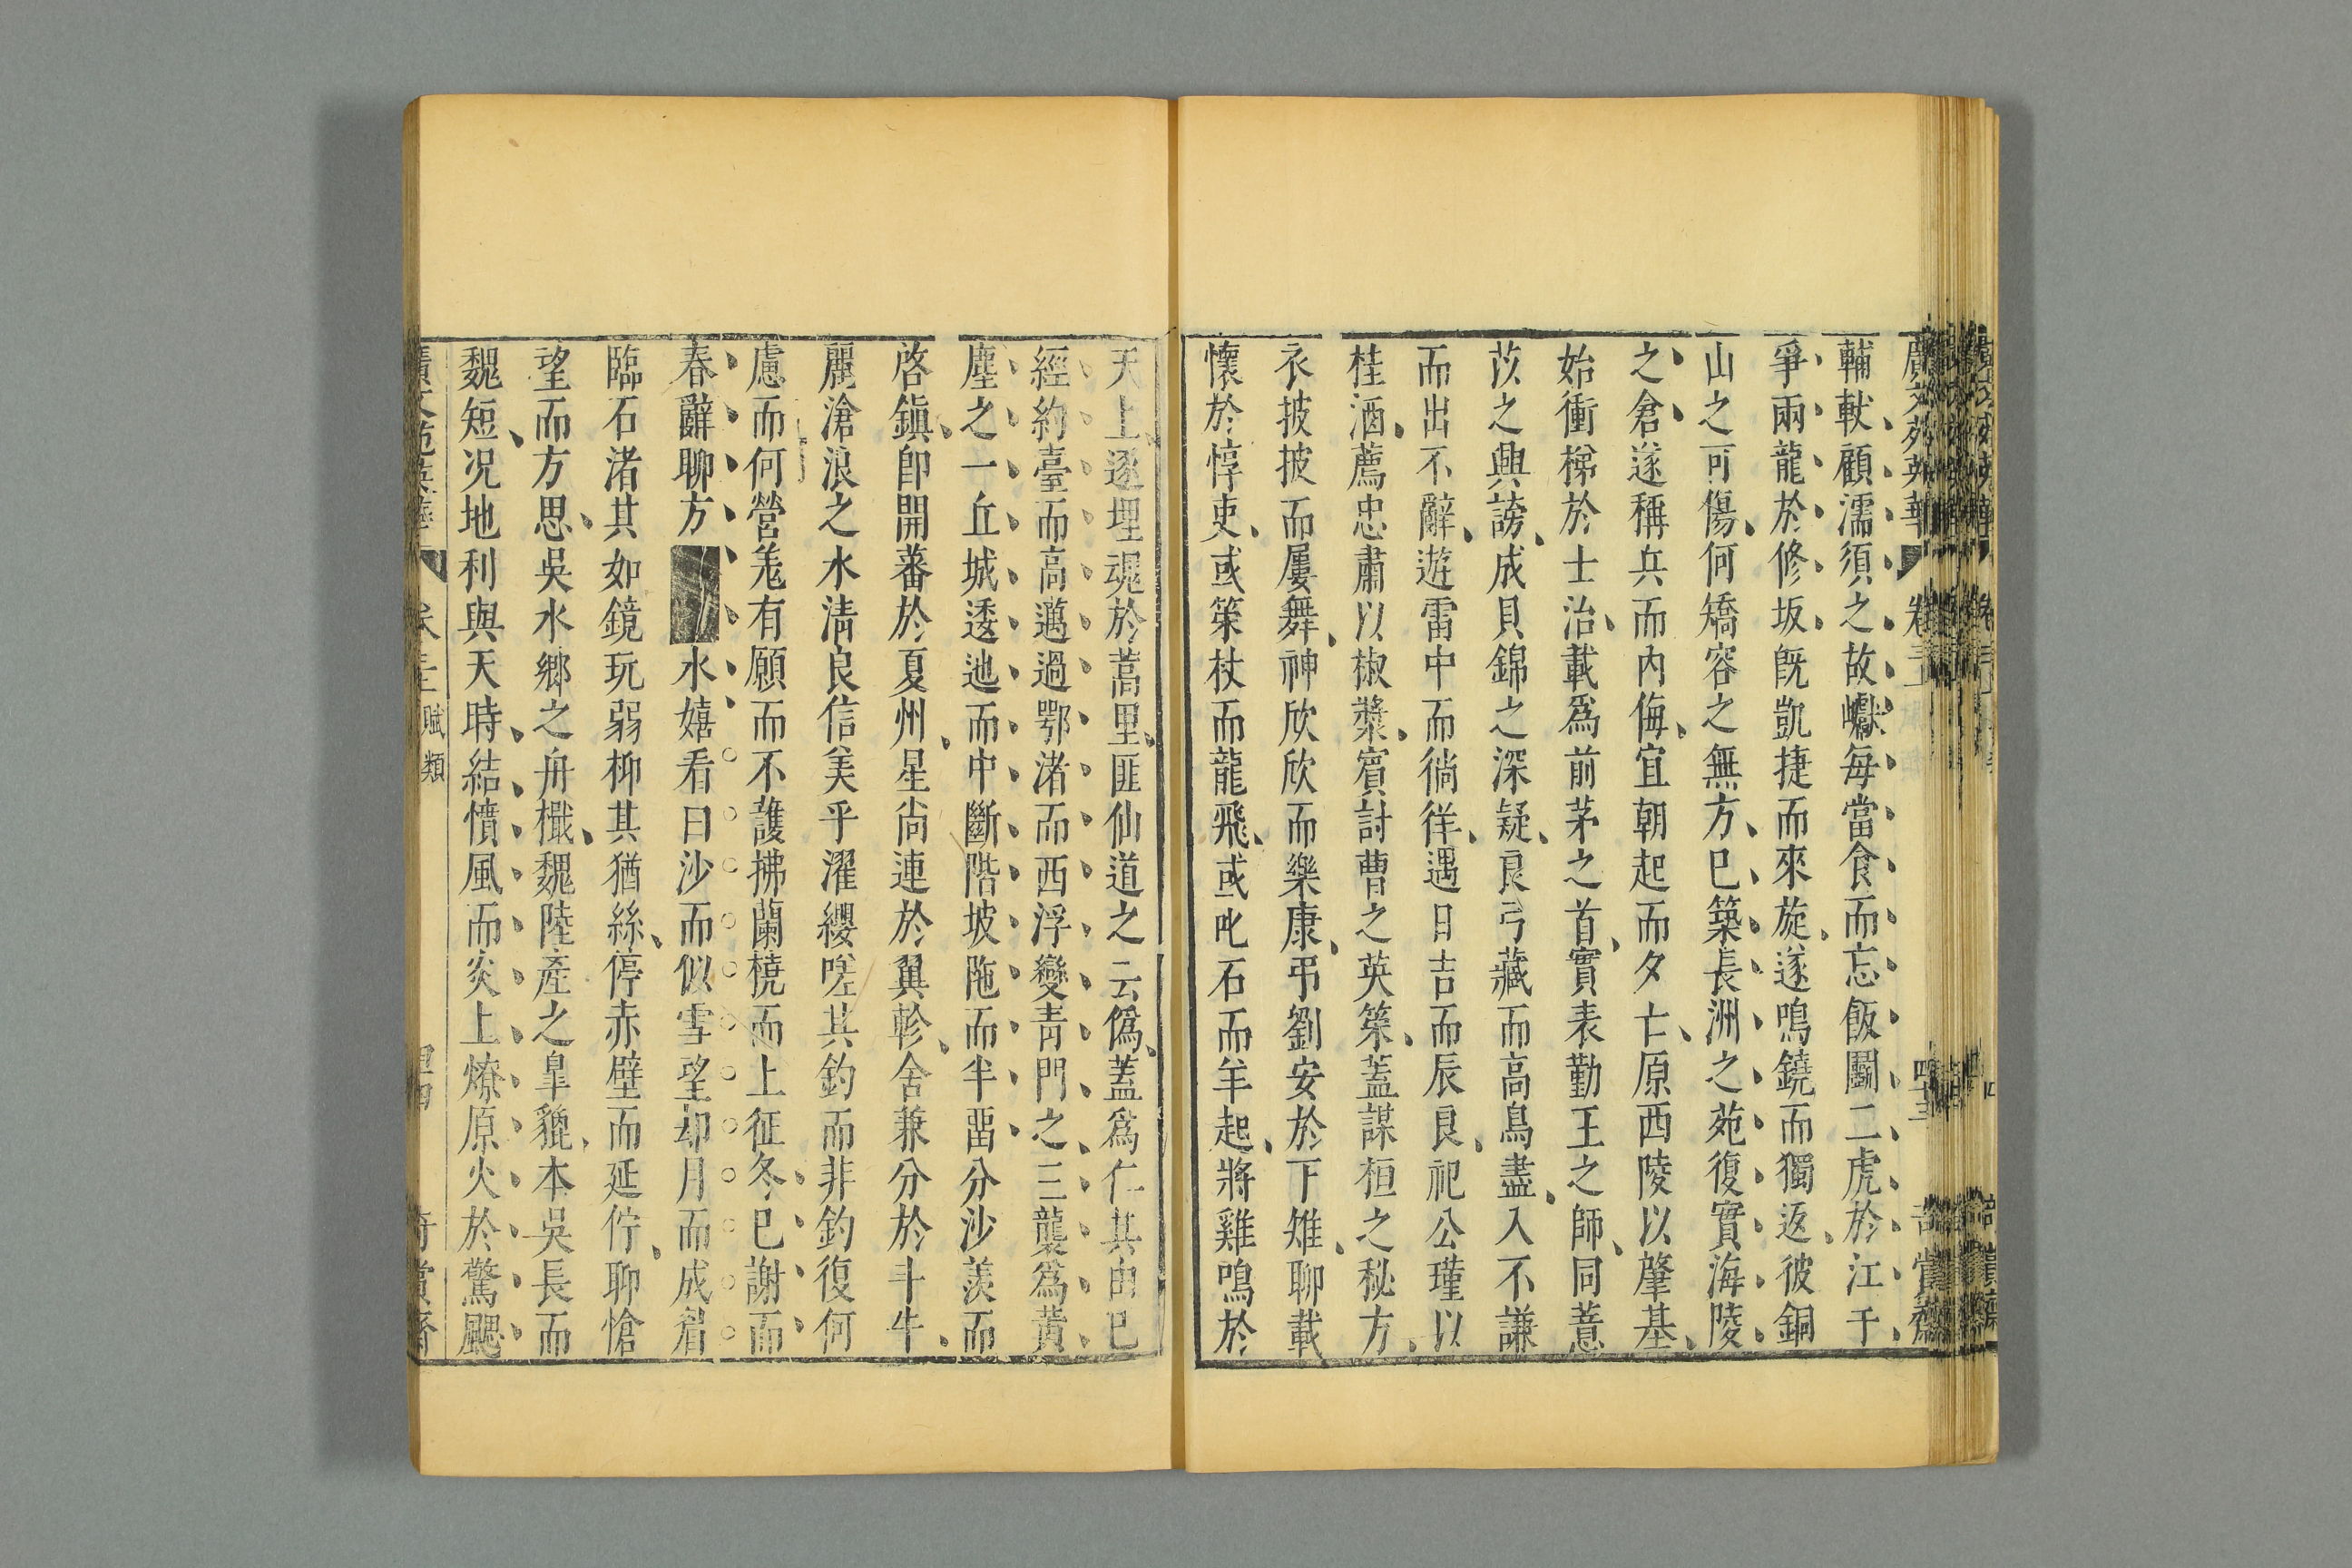 廣文苑英華 卷三
輔軑顧濡須之故巘每當食而忘飯鬭二虎於江干
爭兩龍於修坂旣凱捷而來旋遂鳴鐃而獨返彼銅
山之可傷何矯容之無方已築長洲之苑復實海陵
之倉遂稱兵而內侮宜朝起而夕亡原西陵以肇基
始衝梯於士治載爲前茅之首實表勤王之師同薏
苡之興謗成貝錦之深疑良弓藏而高鳥盡入不謙
而出不辭遊雷中而徜徉遇日吉而辰良祀公瑾以
桂酒薦忠肅以椒漿賓討曹之英策葢謀桓之秘方
衣披披而屢舞神欣欣而樂康弔劉安於下雉聊載
懷於惇史或策杖而龍飛或叱石而羊起將雞鳴於
天上逐埋魂於蒿里匪仙道之云僞葢爲仁其由已
經約臺而高邁過鄂渚而西浮變青門之三襲爲黃
塵之一丘城逶迆而中斷階坡陁而半畱分沙羨而
啓鎭卽開蕃於夏州星尙連於翼軫舍兼分於斗牛
麗滄浪之水淸良信美乎濯纓嗟其釣而非釣復何
慮而何營羗有願而不謢拂蘭橈而上征冬已謝而
春辭聊方水嬉看白沙而似雪望却月而成眉
臨石渚其如鏡玩弱柳其猶絲停赤壁而延佇聊愴
望而方思吳水鄉之舟檝魏陸產之皐貔本吳長而
魏短况地利與天時結憤風而炎上燎原火於驚颸
廣文苑英華 賦類 奇賞齋